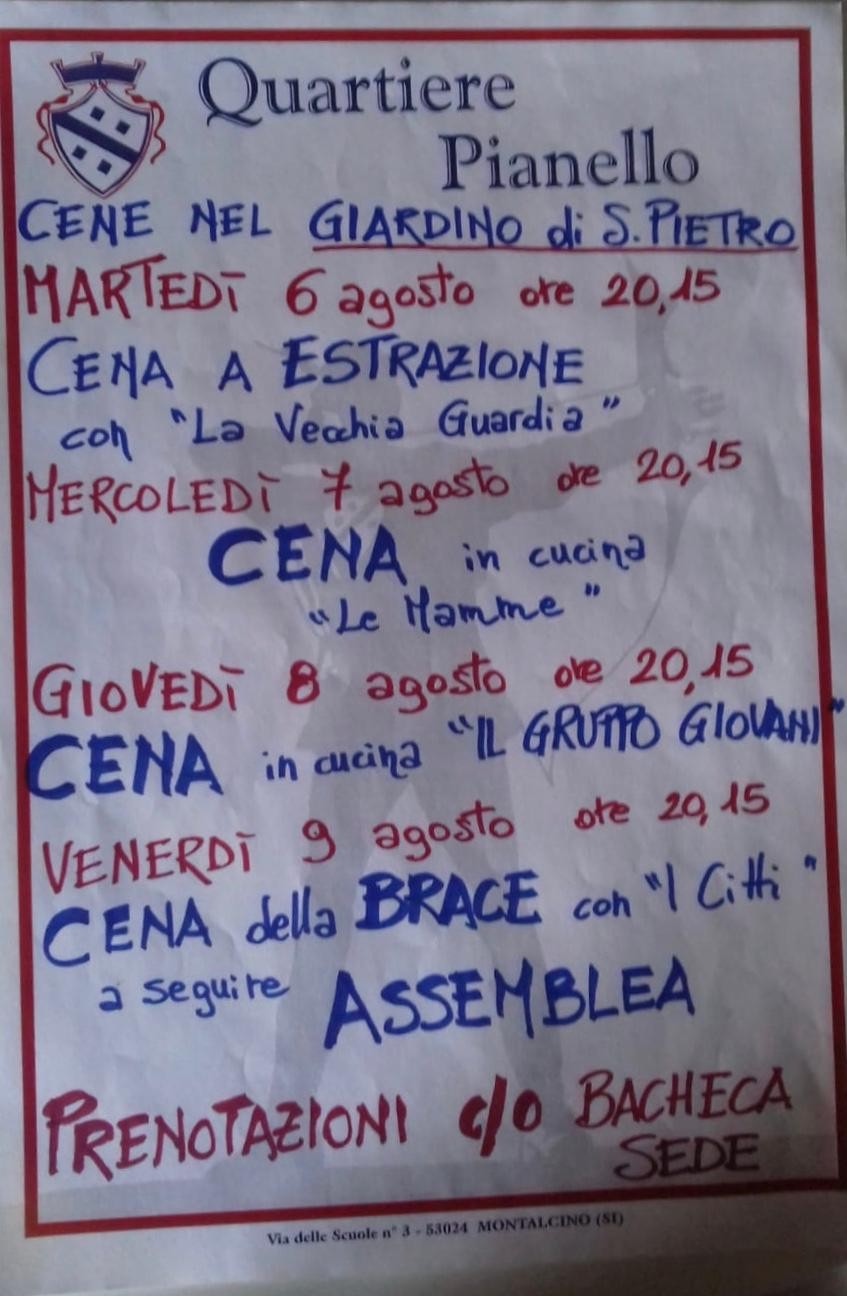 Quartiere
Pianello
CENE NEL GIARDINO di S. PIETRO
MARTEDÌ 6 agosto ore 20,15
CENA A ESTRAZIONE
con "La Vecchia Guardia"
MERCOLEDÌ 7 agosto ore 20,15
CENA in cucina
"Le Mamme"
GIOVEDÌ 8 agosto ore 20,15
CENA in cucina "IL GRUPPO GIOVANI"
VENERDÌ 9 agosto ore 20,15
CENA della BRACE con "I Citti"
a seguire ASSEMBLEA
PRENOTAZIONI c/o BACHECA
SEDE
Via delle Scuole n° 3 - 53024 MONTALCINO (SI)